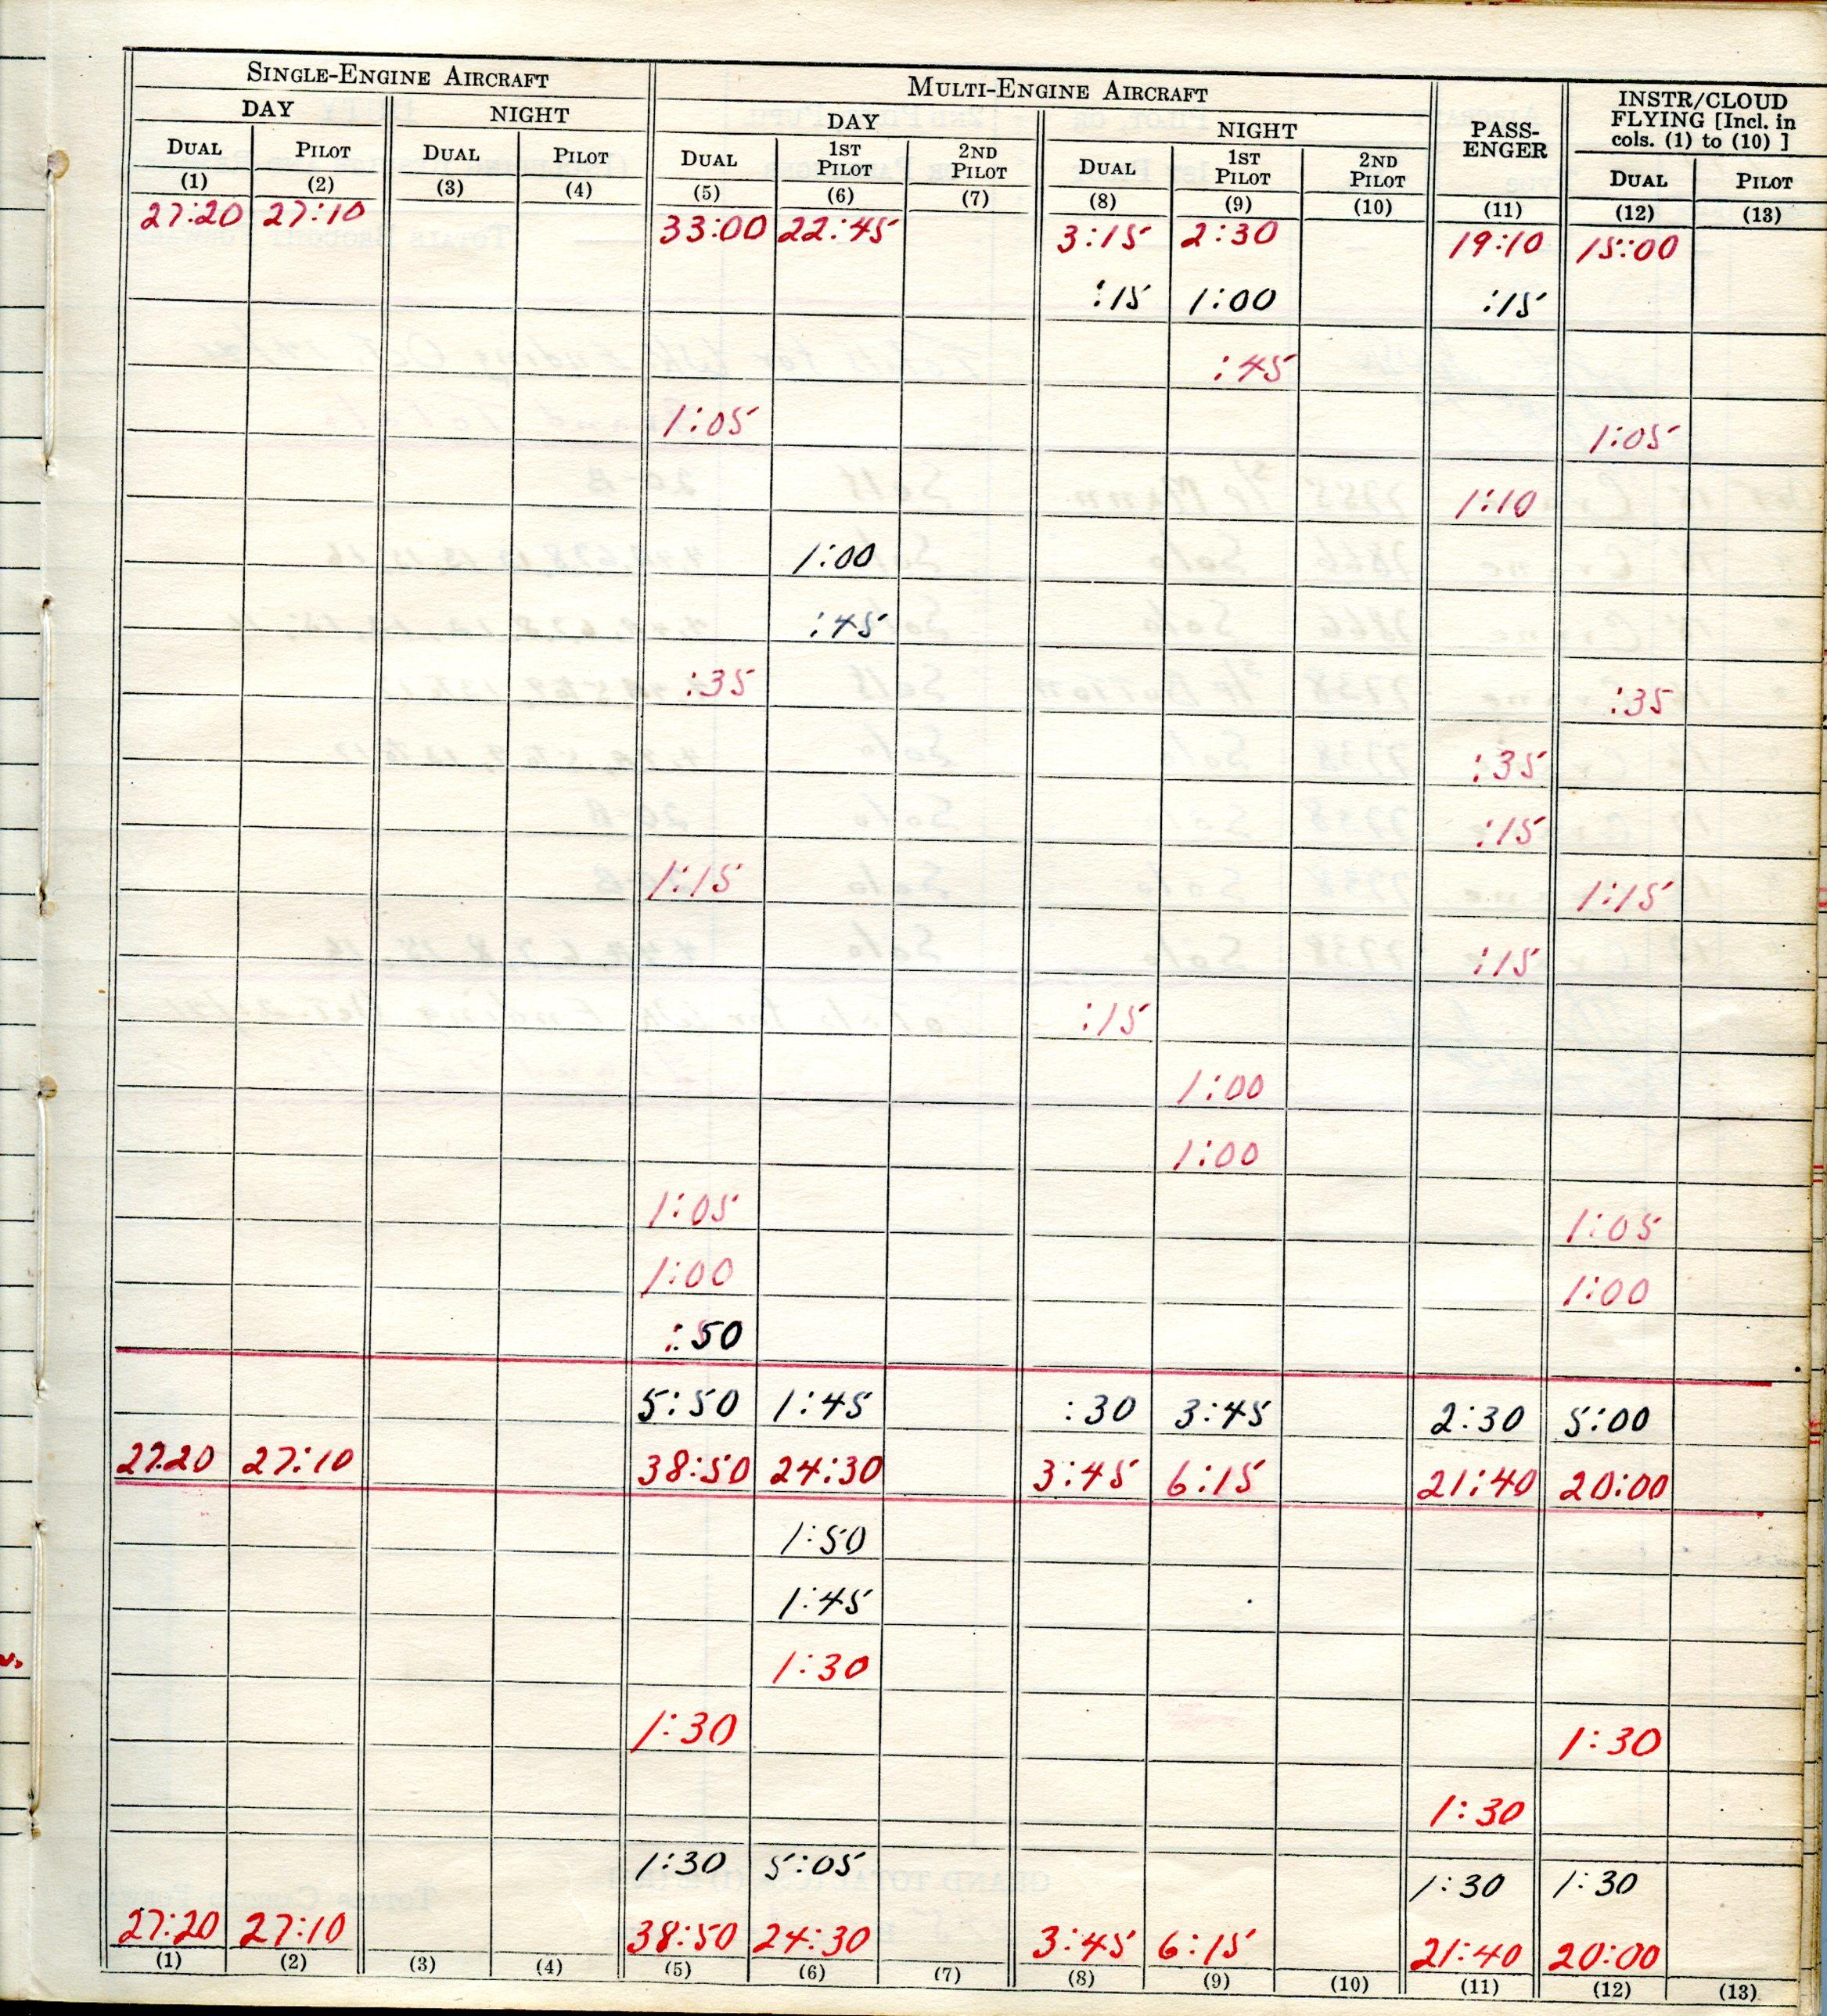 SINGLE-ENGINE AIRCRAFT MULTI-ENGINE AIRCRAFT PASS-ENGER INSTR/CLOUD FLYING [Incl. in cols. (1) to (10) ]
DAY NIGHT DAY NIGHT
DUAL PILOT DUAL PILOT DUAL 1ST PILOT 2ND PILOT DUAL 1ST PILOT 2ND PILOT DUAL PILOT
(1) (2) (3) (4) (5) (6) (7) (8) (9) (10) (11) (12) (13)
27:20 27:10 33:00 22:45 3:15 2:30 19:10 15:00
:15 1:00 :15
:45
1:05 1:05
1:10
1:00
:45
:35 :35
:35
:15
1:15 1:15
:15
:15
1:00
1:00
1:05 1:05
1:00 1:00
:50
5:50 1:45 :30 3:45 2:30 5:00
27:20 27:10 38:50 24:30 3:45 6:15 21:40 20:00
1:50
1:45
1:30
1:30 1:30
1:30
1:30 5:05 1:30 1:30
27:20 27:10 38:50 24:30 3:45 6:15 21:40 20:00
(1) (2) (3) (4) (5) (6) (7) (8) (9) (10) (11) (12) (13)